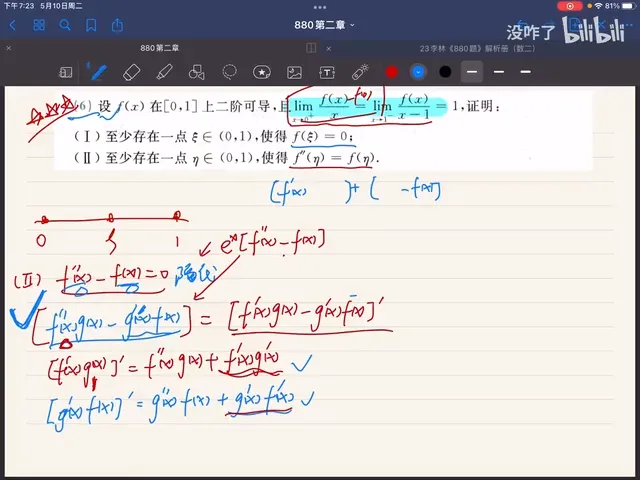 下午7:23 5月10日周二
81%
880第二章
没咋了 bilibili
880第二章
23李林《880题》解析册（数二）
(6) 设 f(x) 在[0,1]上二阶可导，且 lim x→0⁺ f(x)/x = lim x→1⁻ f(x)/(x−1) = 1，证明：
−f(0)
(Ⅰ) 至少存在一点 ξ∈(0,1)，使得 f(ξ)=0；
(Ⅱ) 至少存在一点 η∈(0,1)，使得 f″(η)=f(η).
[f′(x) ]+( −f(x)]
0 ξ 1
eˣ[f″(x)−f(x)]
(Ⅱ) f″(x)−f(x)=0
[f″(x)g(x)−g″(x)f(x)] = [f′(x)g(x)−g′(x)f(x)]′
[f′(x)g(x)]′=f″(x)g(x)+f′(x)g′(x) ✓
[g′(x)f(x)]′=g″(x)f(x)+g′(x)f′(x) ✓